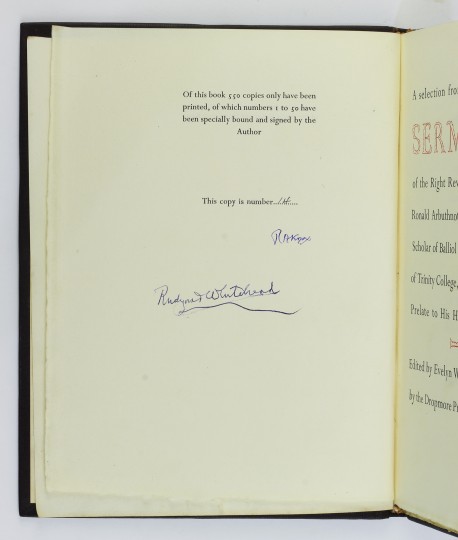 Of this book 550 copies only have been
printed, of which numbers 1 to 50 have
been specially bound and signed by the
Author
This copy is number
RAKnox
Whitehead
A selection fro
SERM
of the Right Rev
Ronald Arbuthno
Scholar of Balliol
of Trinity College,
Prelate to His H
Edited by Evelyn W
by the Dropmore Pr